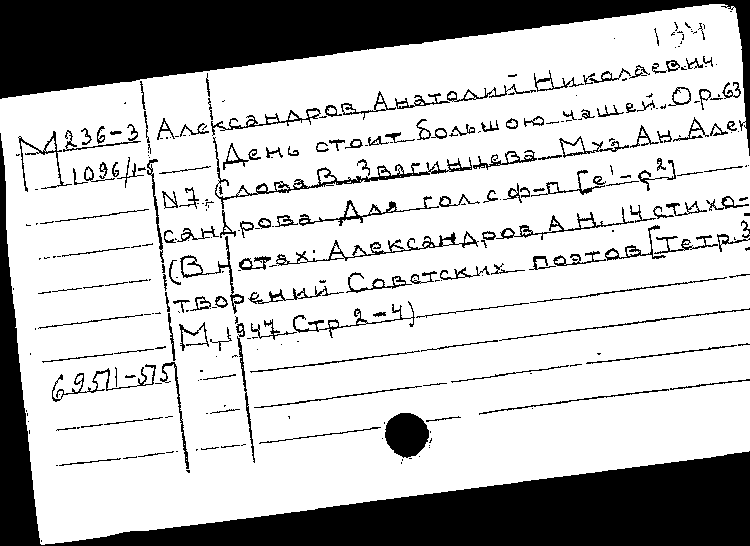 134
М 236-3
1096/1-5
Александров, Анатолий Николаевич
День стоит большою чашей. Ор. 63
N 7. Слова В. Звягинцева Муз Ан. Алек
сандрова. Для гол. с ф-п [e¹-g²]
(В нотах: Александров, А Н. 14 стихо-
творений Советских поэтов [Тетр. 3
М., 1947. Стр 2-4)
69511-515